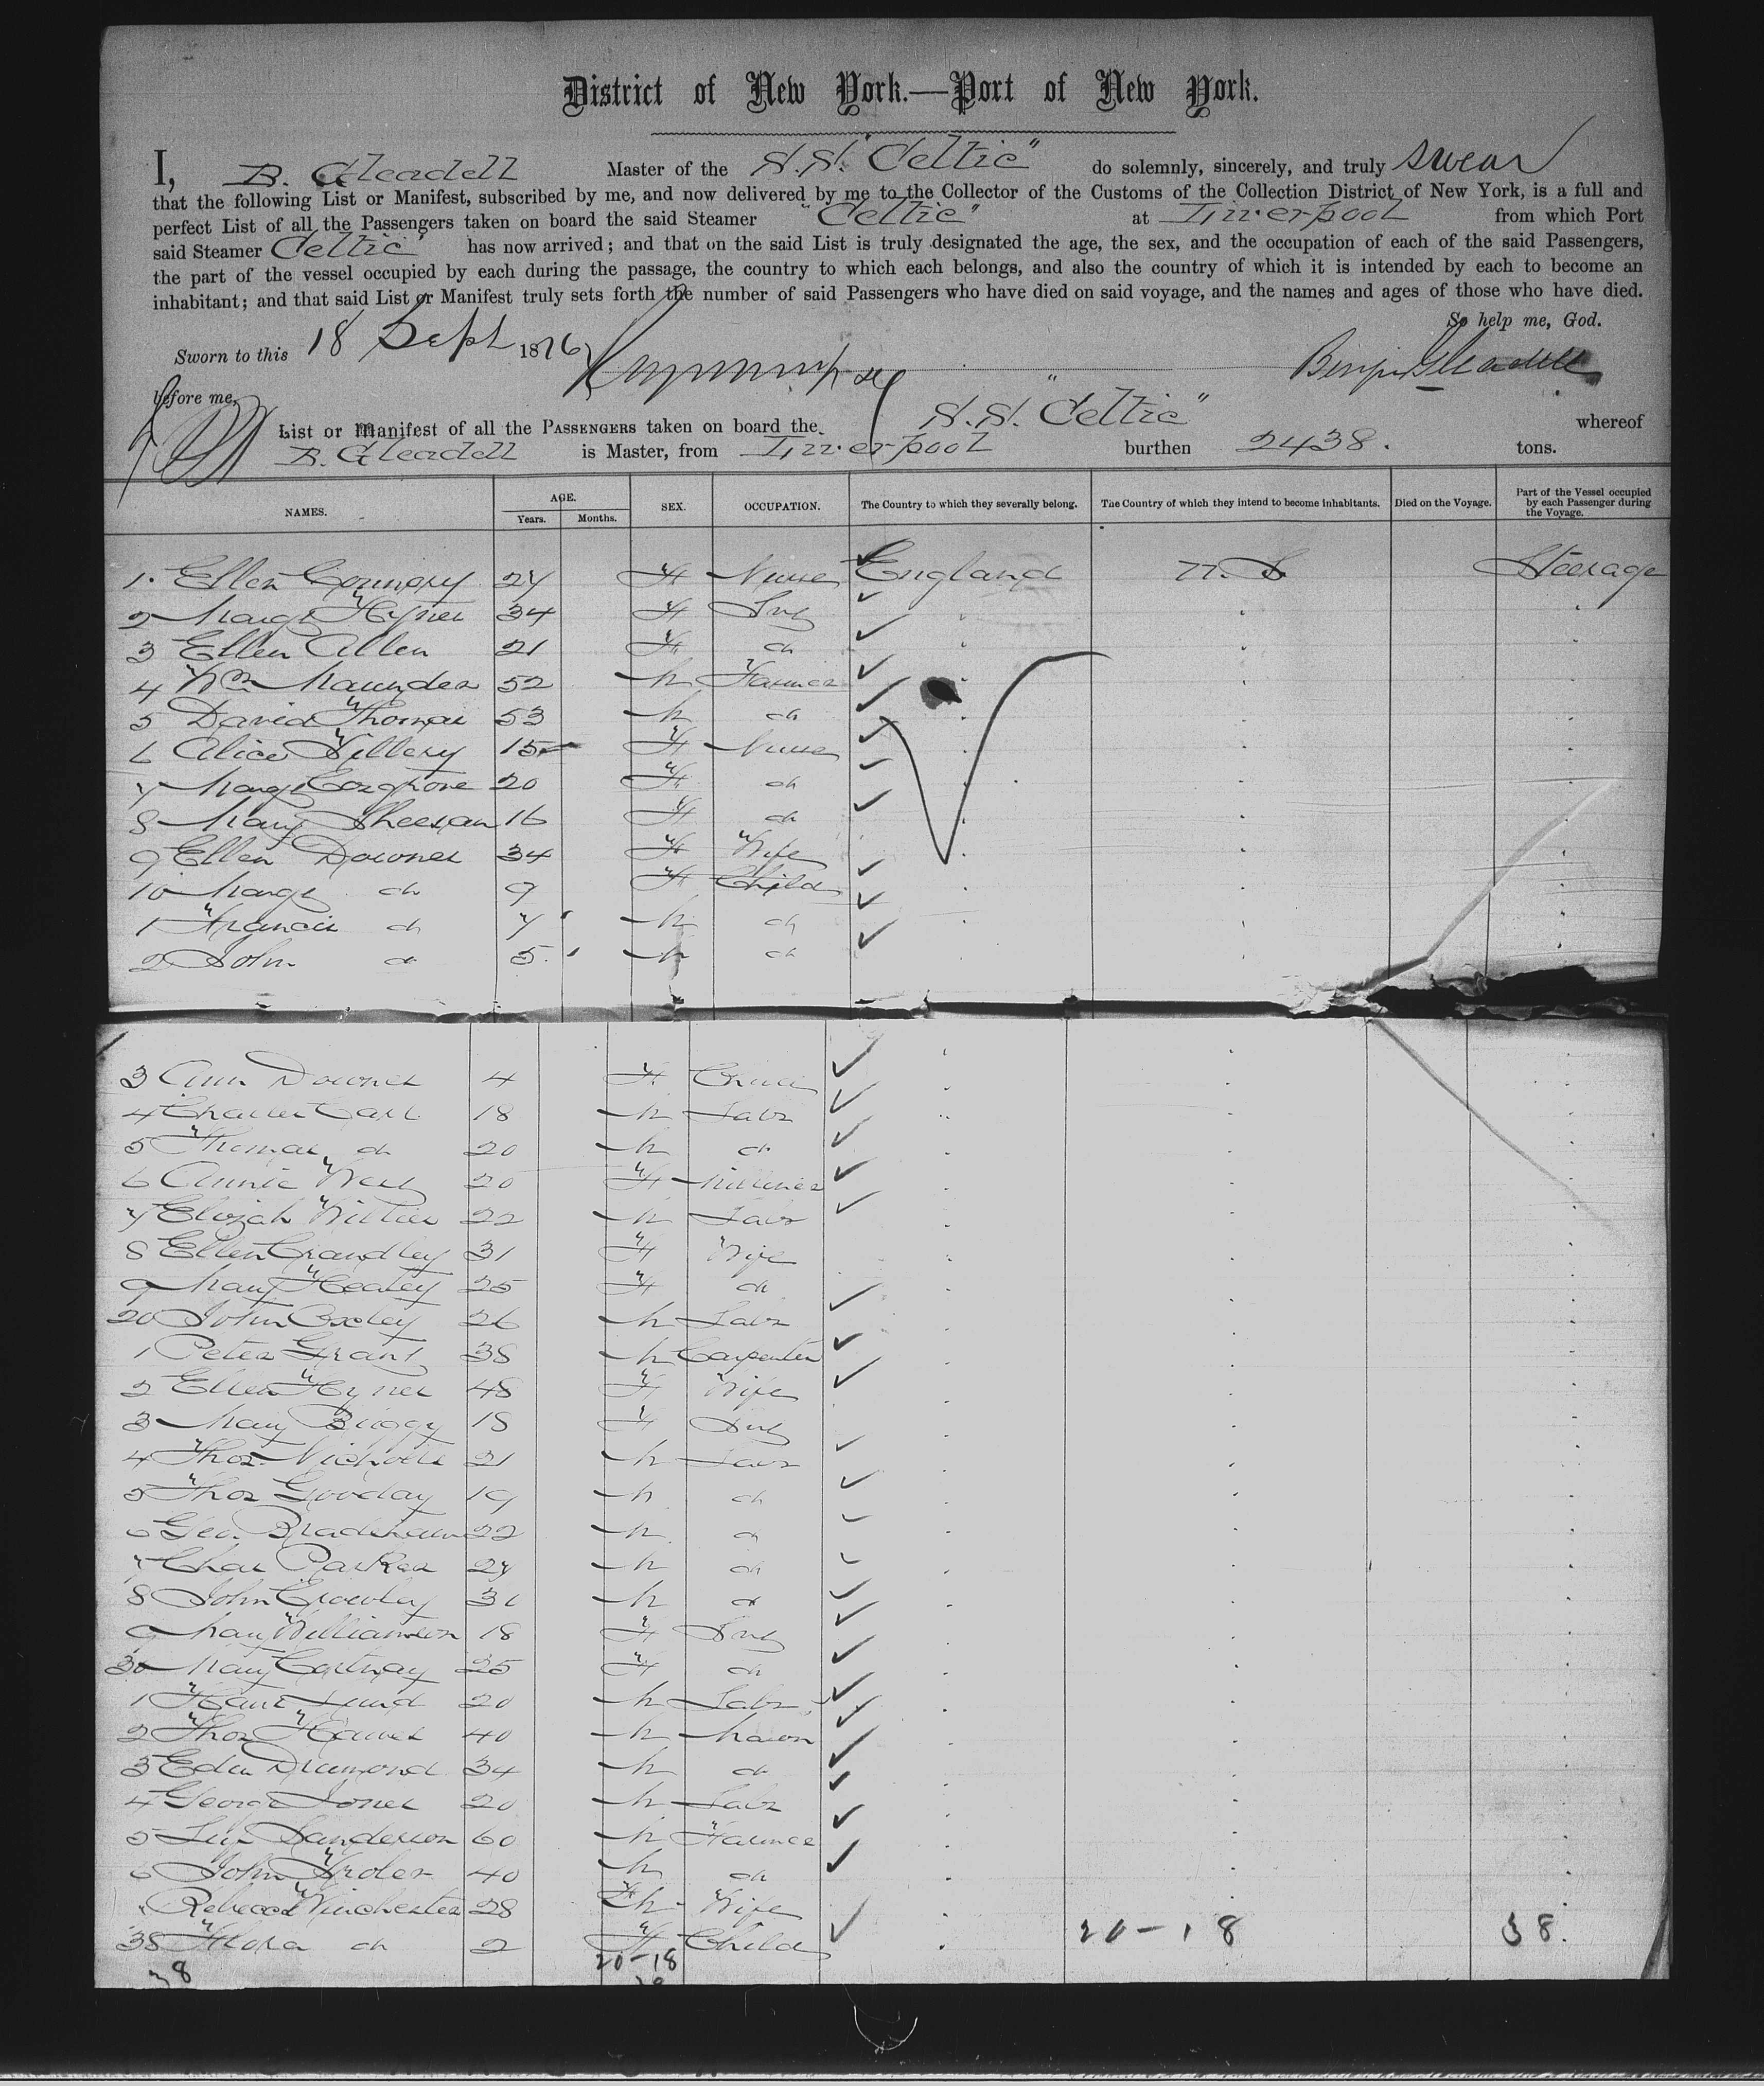 District of New York.—Port of New York.
I, B. Gleadell Master of the S.S. "Celtic" do solemnly, sincerely, and truly swear
that the following List or Manifest, subscribed by me, and now delivered by me to the Collector of the Customs of the Collection District of New York, is a full and
perfect List of all the Passengers taken on board the said Steamer "Celtic" at Liverpool from which Port
said Steamer Celtic" has now arrived; and that on the said List is truly designated the age, the sex, and the occupation of each of the said Passengers,
the part of the vessel occupied by each during the passage, the country to which each belongs, and also the country of which it is intended by each to become an
inhabitant; and that said List or Manifest truly sets forth the number of said Passengers who have died on said voyage, and the names and ages of those who have died.
So help me, God.
Sworn to this 18 Sept 1876 Benjn Gleadell
before me,
List or Manifest of all the PASSENGERS taken on board the S.S. "Celtic" whereof
B. Gleadell is Master, from Liverpool burthen 2438. tons.
NAMES. AGE. Years. Months. SEX. OCCUPATION. The Country to which they severally belong. The Country of which they intend to become inhabitants. Died on the Voyage. Part of the Vessel occupied by each Passenger during the Voyage.
1. Ellen 27 F Nurse England U.S. Steerage
2 Margt Hynes 34 F Srv
3 Ellen Allen 21 F do
4 Wm Maunder 52 M Farmer
5 David Thomas 53 M do
6 Alice Tillery 15 F Nurse
7 Margt Cosgrove 20 F do
8 Mary Sheehan 16 F do
9 Ellen Downes 34 F Wife
10 Margt do 9 F Child
1 Francis do 7 M do
2 John do 5 M do
3 Ann Downes 4 F Child
4 Charles Carl 18 M Labr
5 Thomas do 20 M do
6 Annie 20 F Milliner
7 Elizah Willies 22 M Labr
8 Ellen Grandley 31 F Wife
9 Mary Healey 25 F do
20 John Oxley 26 M Labr
1 Peter Grant 38 M Carpenter
2 Ellen Hynes 48 F Wife
3 Mary Buggy 18 F Srv
4 Thos. Nicholls 21 M Labr
5 Thos Gooday 19 M do
6 Geo. Bradshaw 22 M do
7 Chas Parker 27 M do
8 John Crowley 31 M do
9 Mary Williamson 18 F Srv
30 Mary 25 F do
1 Hans Lund 20 M Labr
2 Thos Hawes 40 M Mason
3 Edw Drumond 34 M do
4 George Jones 20 M Labr
5 Sanderson 60 M Farmer
6 John 40 M do
Rebecca Winchester 28 F Wife
38 Flora do 2 F Child 20-18 38.
38 20-18